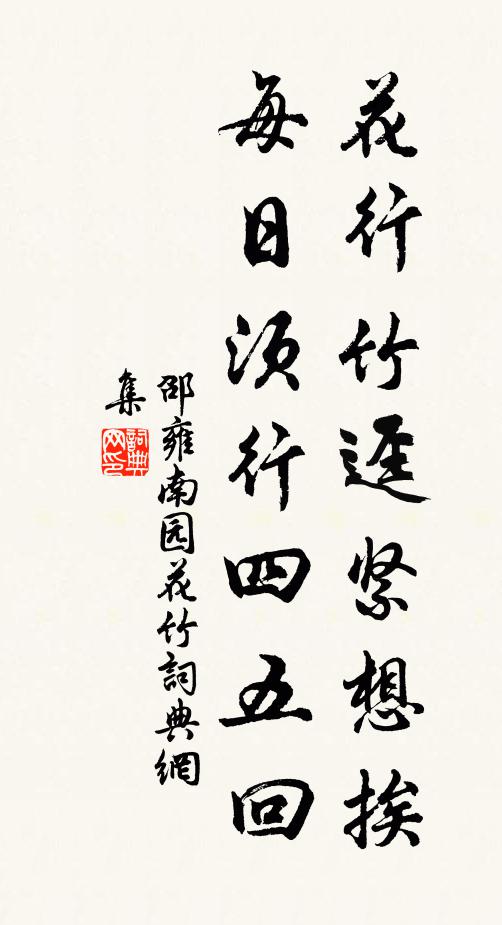 花行竹逕紧想挨
每日须行四五回
邵雍南园花竹詞典網
集
詞典
网印